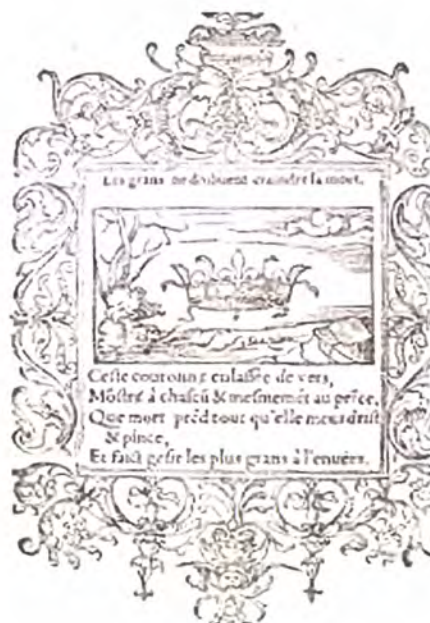 Les grans ne doibuent craindre la mort.
Ceste couronne enlassée de vers,
Mõstre à chascũ & mesmemẽt au prĩce,
Que mort prẽd tout qu'elle
& pince,
Et faict gesir les plus grans à l'enuers.